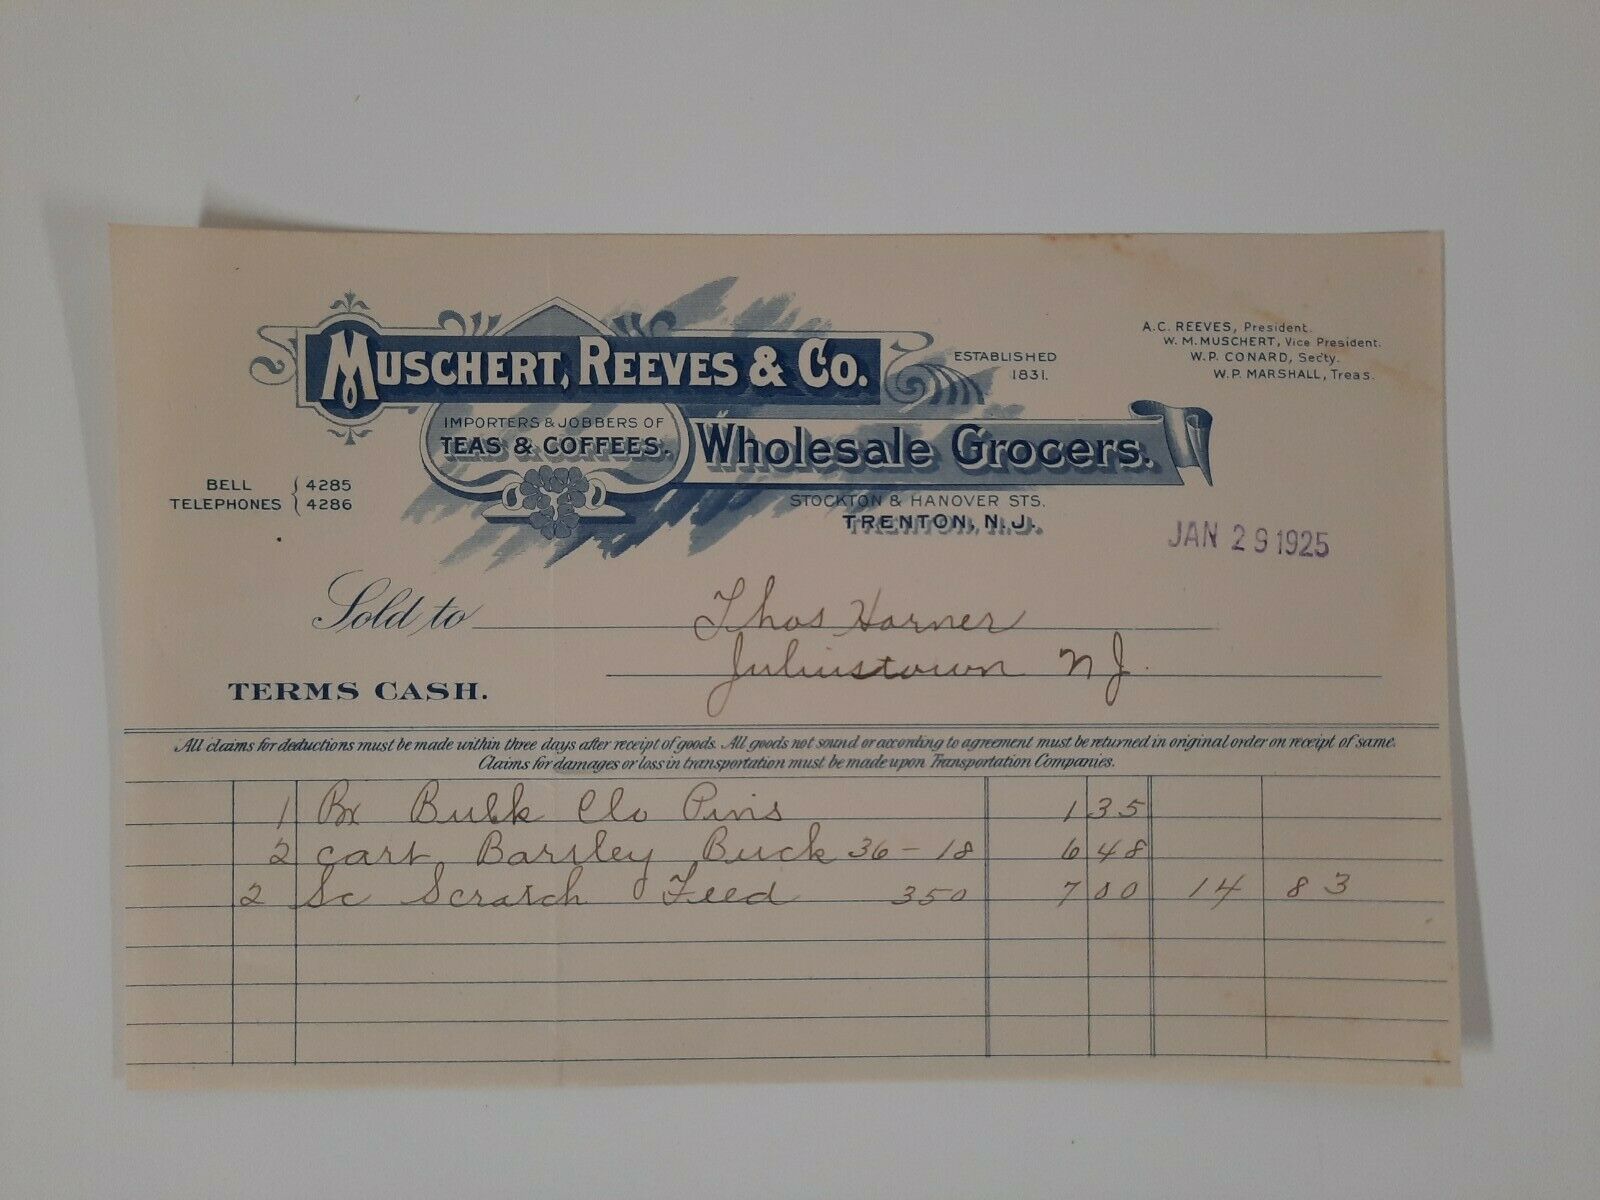 MUSCHERT, REEVES & CO.
ESTABLISHED
1831.
A.C. REEVES, President.
W.M. MUSCHERT, Vice President.
W.P. CONARD, Sec'ty.
W.P. MARSHALL, Treas.
IMPORTERS & JOBBERS OF
TEAS & COFFEES.
Wholesale Grocers.
BELL TELEPHONES { 4285
4286
STOCKTON & HANOVER STS.
TRENTON, N.J.
JAN 29 1925
Sold to Thos Horner
Juliustown NJ.
TERMS CASH.
All claims for deductions must be made within three days after receipt of goods. All goods not sound or according to agreement must be returned in original order on receipt of same.
Claims for damages or loss in transportation must be made upon Transportation Companies.
1 Bx Bulk Clo Pins 1 35
2 cart Buck 36-18 6 48
2 Sc Scratch Feed 350 7 00 14 83